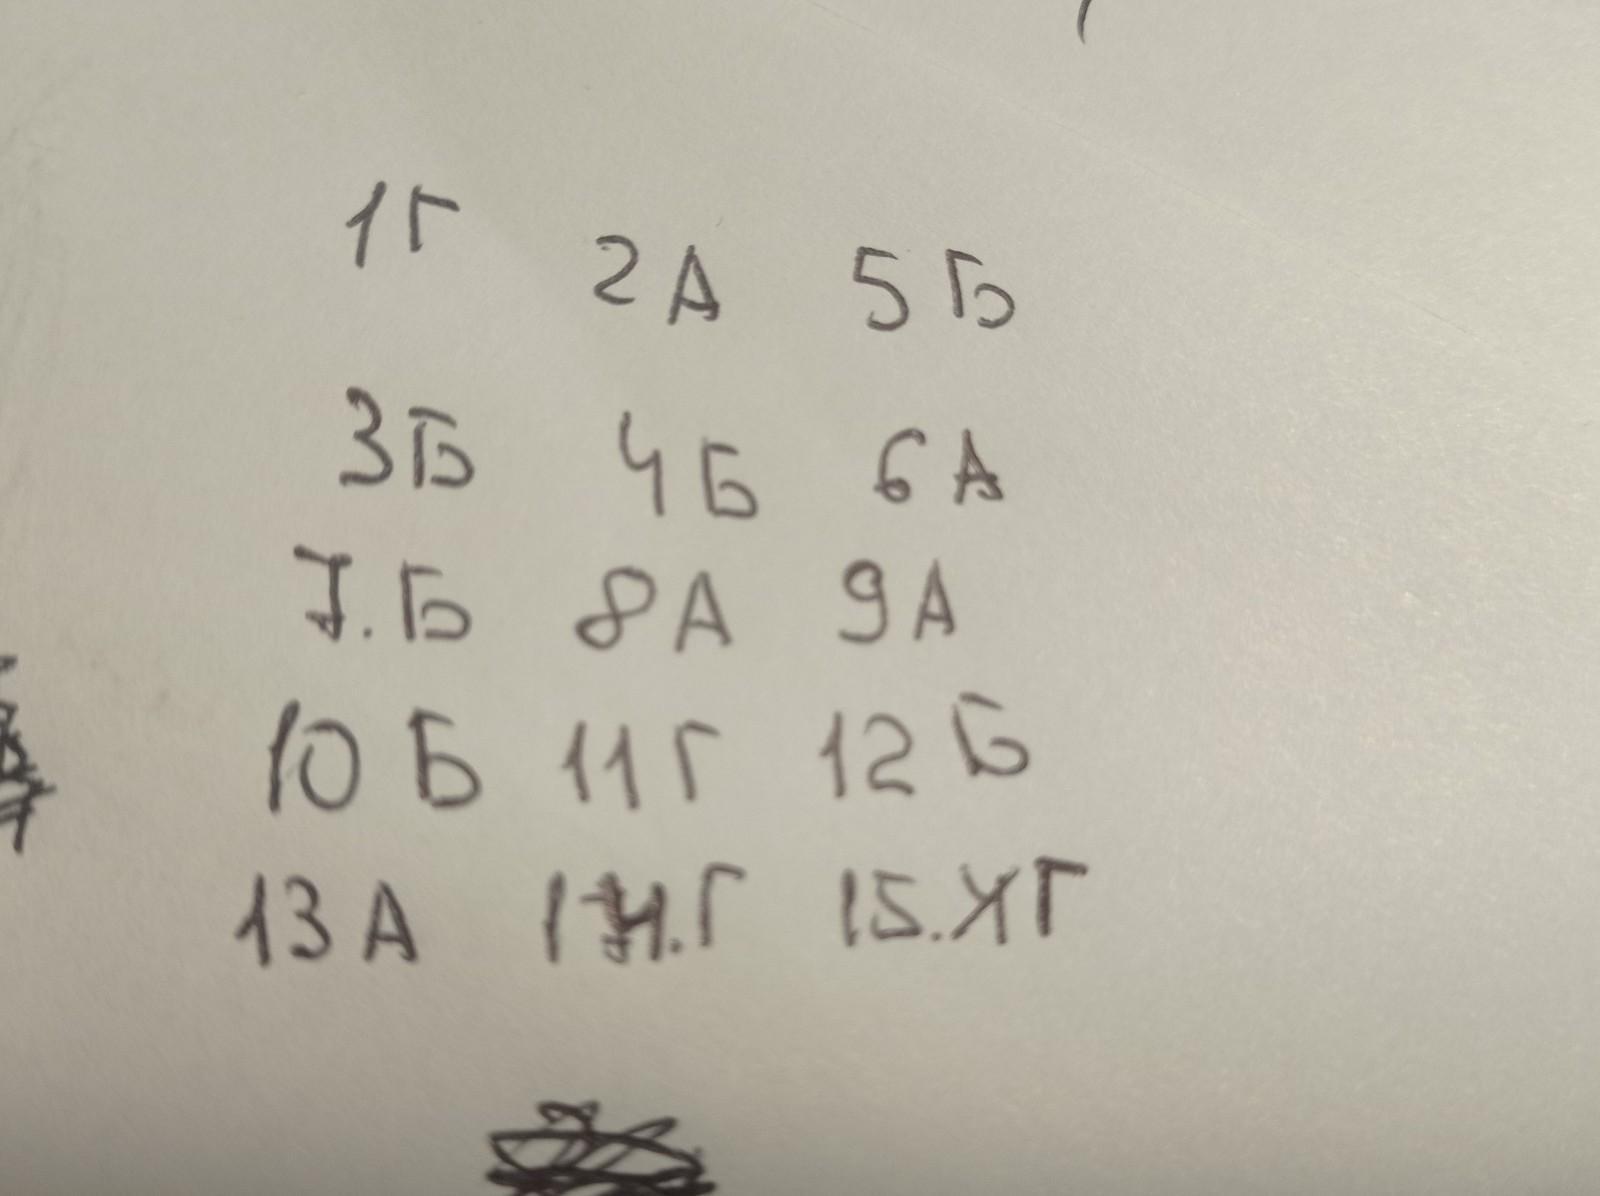 1Г 2А 5Б
3Б 4Б 6А
7.Б 8А 9А
10 Б 11Г 12 Б
13 А 14.Г 15.Г